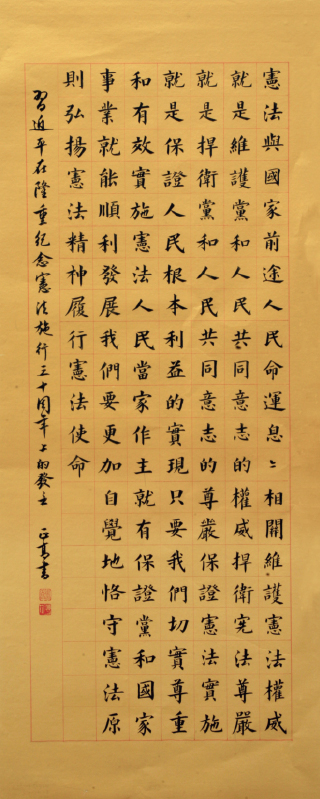 憲法與國家前途人民命運息〻相關維護憲法權威
就是維護黨和人民共同意志的權威捍衛宪法尊嚴
就是捍衛黨和人民共同意志的尊嚴保證憲法實施
就是保證人民根本利益的實現只要我們切實尊重
和有效實施憲法人民當家作主就有保證黨和國家
事業就能順利發展我們要更加自覺地恪守憲法原
則弘揚憲法精神履行憲法使命
習近平在隆重紀念憲法施行三十周年上的發言 書